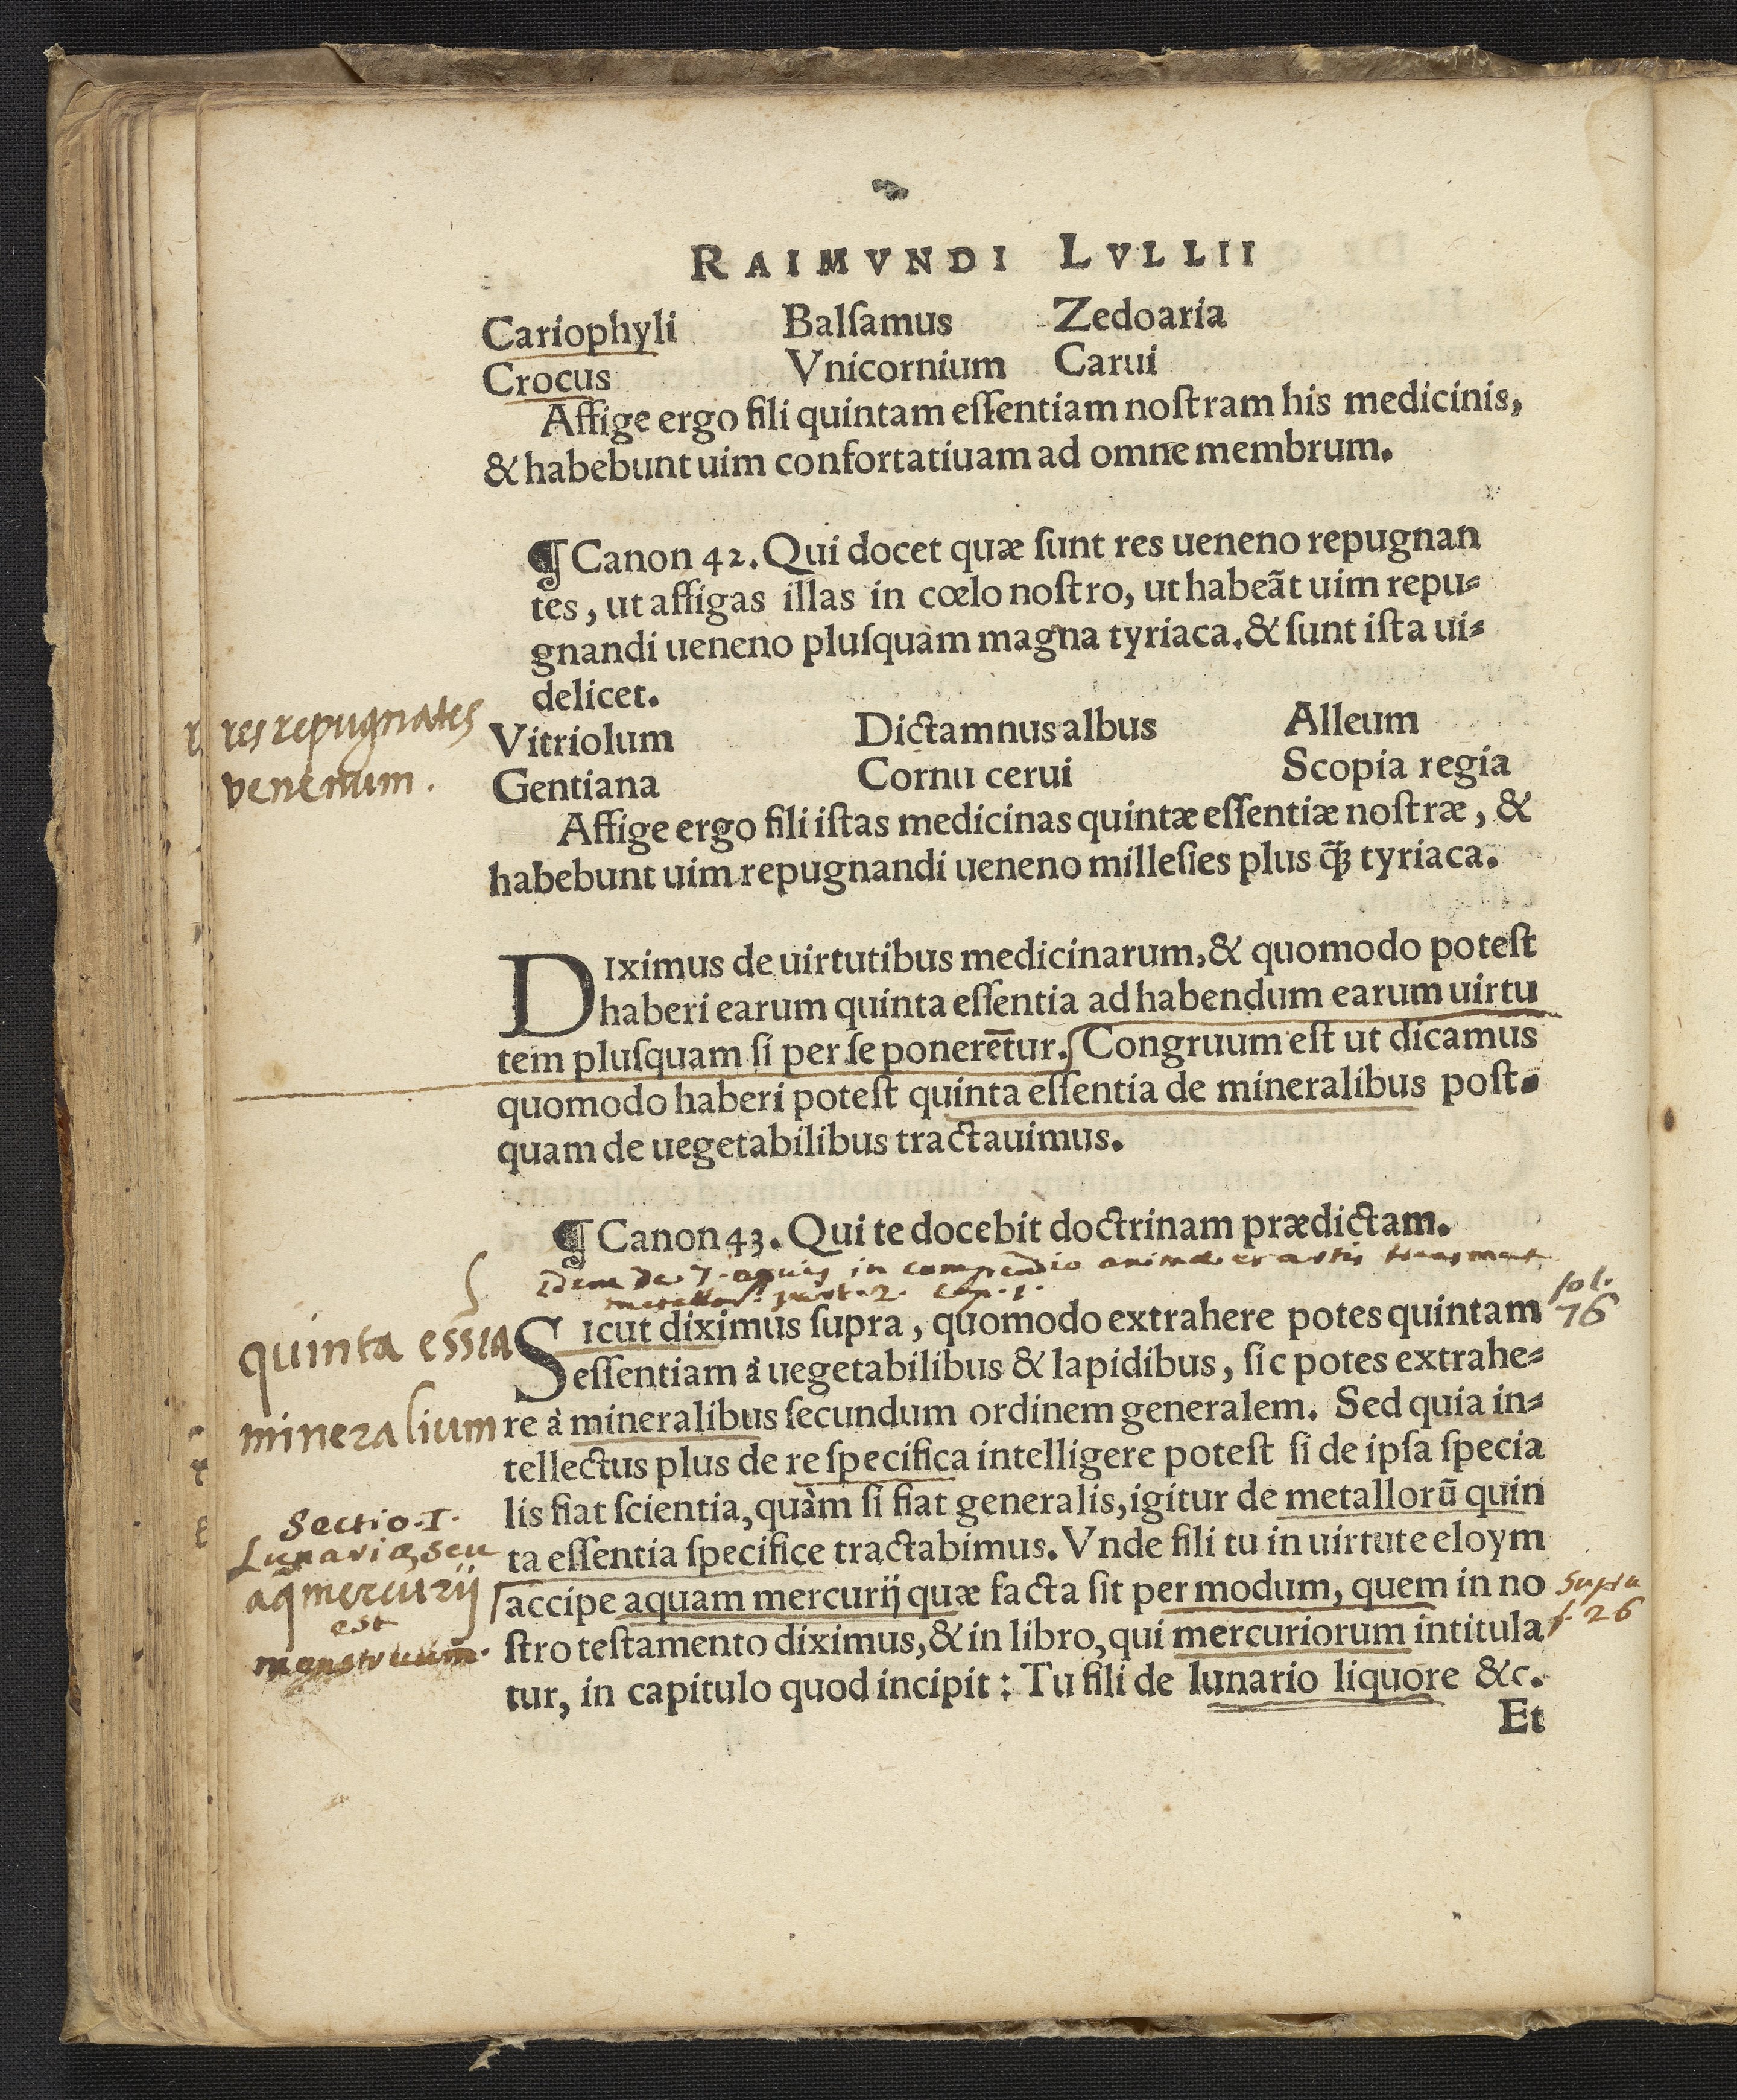 RAIMVNDI LVLLII
Cariophyli Balſamus Zedoaria
Crocus Vnicornium Carui
Affige ergo fili quintam eſſentiam noſtram his medicinis,
& habebunt uim confortatiuam ad omne membrum.
¶ Canon 42. Qui docet quæ ſunt res ueneno repugnan
tes, ut affigas illas in cœlo noſtro, ut habeãt uim repu⸗
gnandi ueneno pluſquàm magna tyriaca. & ſunt iſta ui⸗
delicet.
res repugnates
venenum.
Vitriolum Dictamnus albus Alleum
Gentiana Cornu cerui Scopia regia
Affige ergo fili iſtas medicinas quintæ eſſentiæ noſtræ, &
habebunt uim repugnandi ueneno milleſies plus q̃ꝫ tyriaca.
DIximus de uirtutibus medicinarum, & quomodo poteſt
haberi earum quinta eſſentia ad habendum earum uirtu
tem pluſquam ſi per ſe ponerẽtur. Congruum eſt ut dicamus
quomodo haberi poteſt quinta eſſentia de mineralibus poſt⸗
quam de uegetabilibus tractauimus.
¶ Canon 43. Qui te docebit doctrinam prædictam.
Idem de 7. aquis in compendio animæ artis
part. 2. cap. 1.
fol.
76
quinta essia
mineralium
SIcut diximus ſupra, quomodo extrahere potes quintam
eſſentiam à uegetabilibus & lapidibus, ſic potes extrahe⸗
re à mineralibus ſecundum ordinem generalem. Sed quia in⸗
tellectus plus de re ſpecifica intelligere poteſt ſi de ipſa ſpecia
lis fiat ſcientia, quàm ſi fiat generalis, igitur de metallorũ quin
ta eſſentia ſpecifice tractabimus. Vnde fili tu in uirtute eloym
accipe aquam mercurij quæ facta ſit per modum, quem in no
ſtro teſtamento diximus, & in libro, qui mercuriorum intitula
tur, in capitulo quod incipit: Tu fili de lunario liquore &c.
Sectio. I.
Lunariæ, seu
aq̃ mercurij
est
menstruum.
supra
f. 26
Et